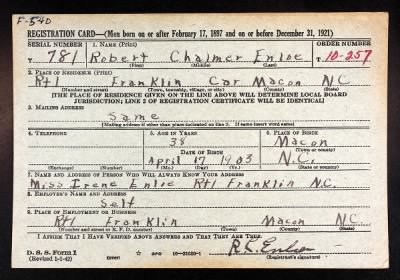 F-540
REGISTRATION CARD—(Men born on or after February 17, 1897 and on or before December 31, 1921)
SERIAL NUMBER 1. NAME (Print) ORDER NUMBER
T 781 Robert Chalmer Enloe T 10-257
(First) (Middle) (Last)
2. PLACE OF RESIDENCE (Print)
Rt1 Franklin Car. Macon N.C.
(Number and street) (Town, township, village, or city) (County) (State)
[THE PLACE OF RESIDENCE GIVEN ON THE LINE ABOVE WILL DETERMINE LOCAL BOARD
JURISDICTION; LINE 2 OF REGISTRATION CERTIFICATE WILL BE IDENTICAL]
3. MAILING ADDRESS
Same
[Mailing address if other than place indicated on line 2. If same insert word same]
4. TELEPHONE 5. AGE IN YEARS 6. PLACE OF BIRTH
38 Macon
DATE OF BIRTH (Town or county)
April 17 1903 N.C.
(Exchange) (Number) (Mo.) (Day) (Yr.) (State or country)
7. NAME AND ADDRESS OF PERSON WHO WILL ALWAYS KNOW YOUR ADDRESS
Miss Irene Enloe Rt1 Franklin N.C.
8. EMPLOYER'S NAME AND ADDRESS
Self
9. PLACE OF EMPLOYMENT OR BUSINESS
Rt1 Franklin Macon N.C.
(Number and street or R. F. D. number) (Town) (County) (State)
I AFFIRM THAT I HAVE VERIFIED ABOVE ANSWERS AND THAT THEY ARE TRUE.
D. S. S. Form 1
(Revised 1-1-42) (over) R.C. Enloe
(Registrant's signature)